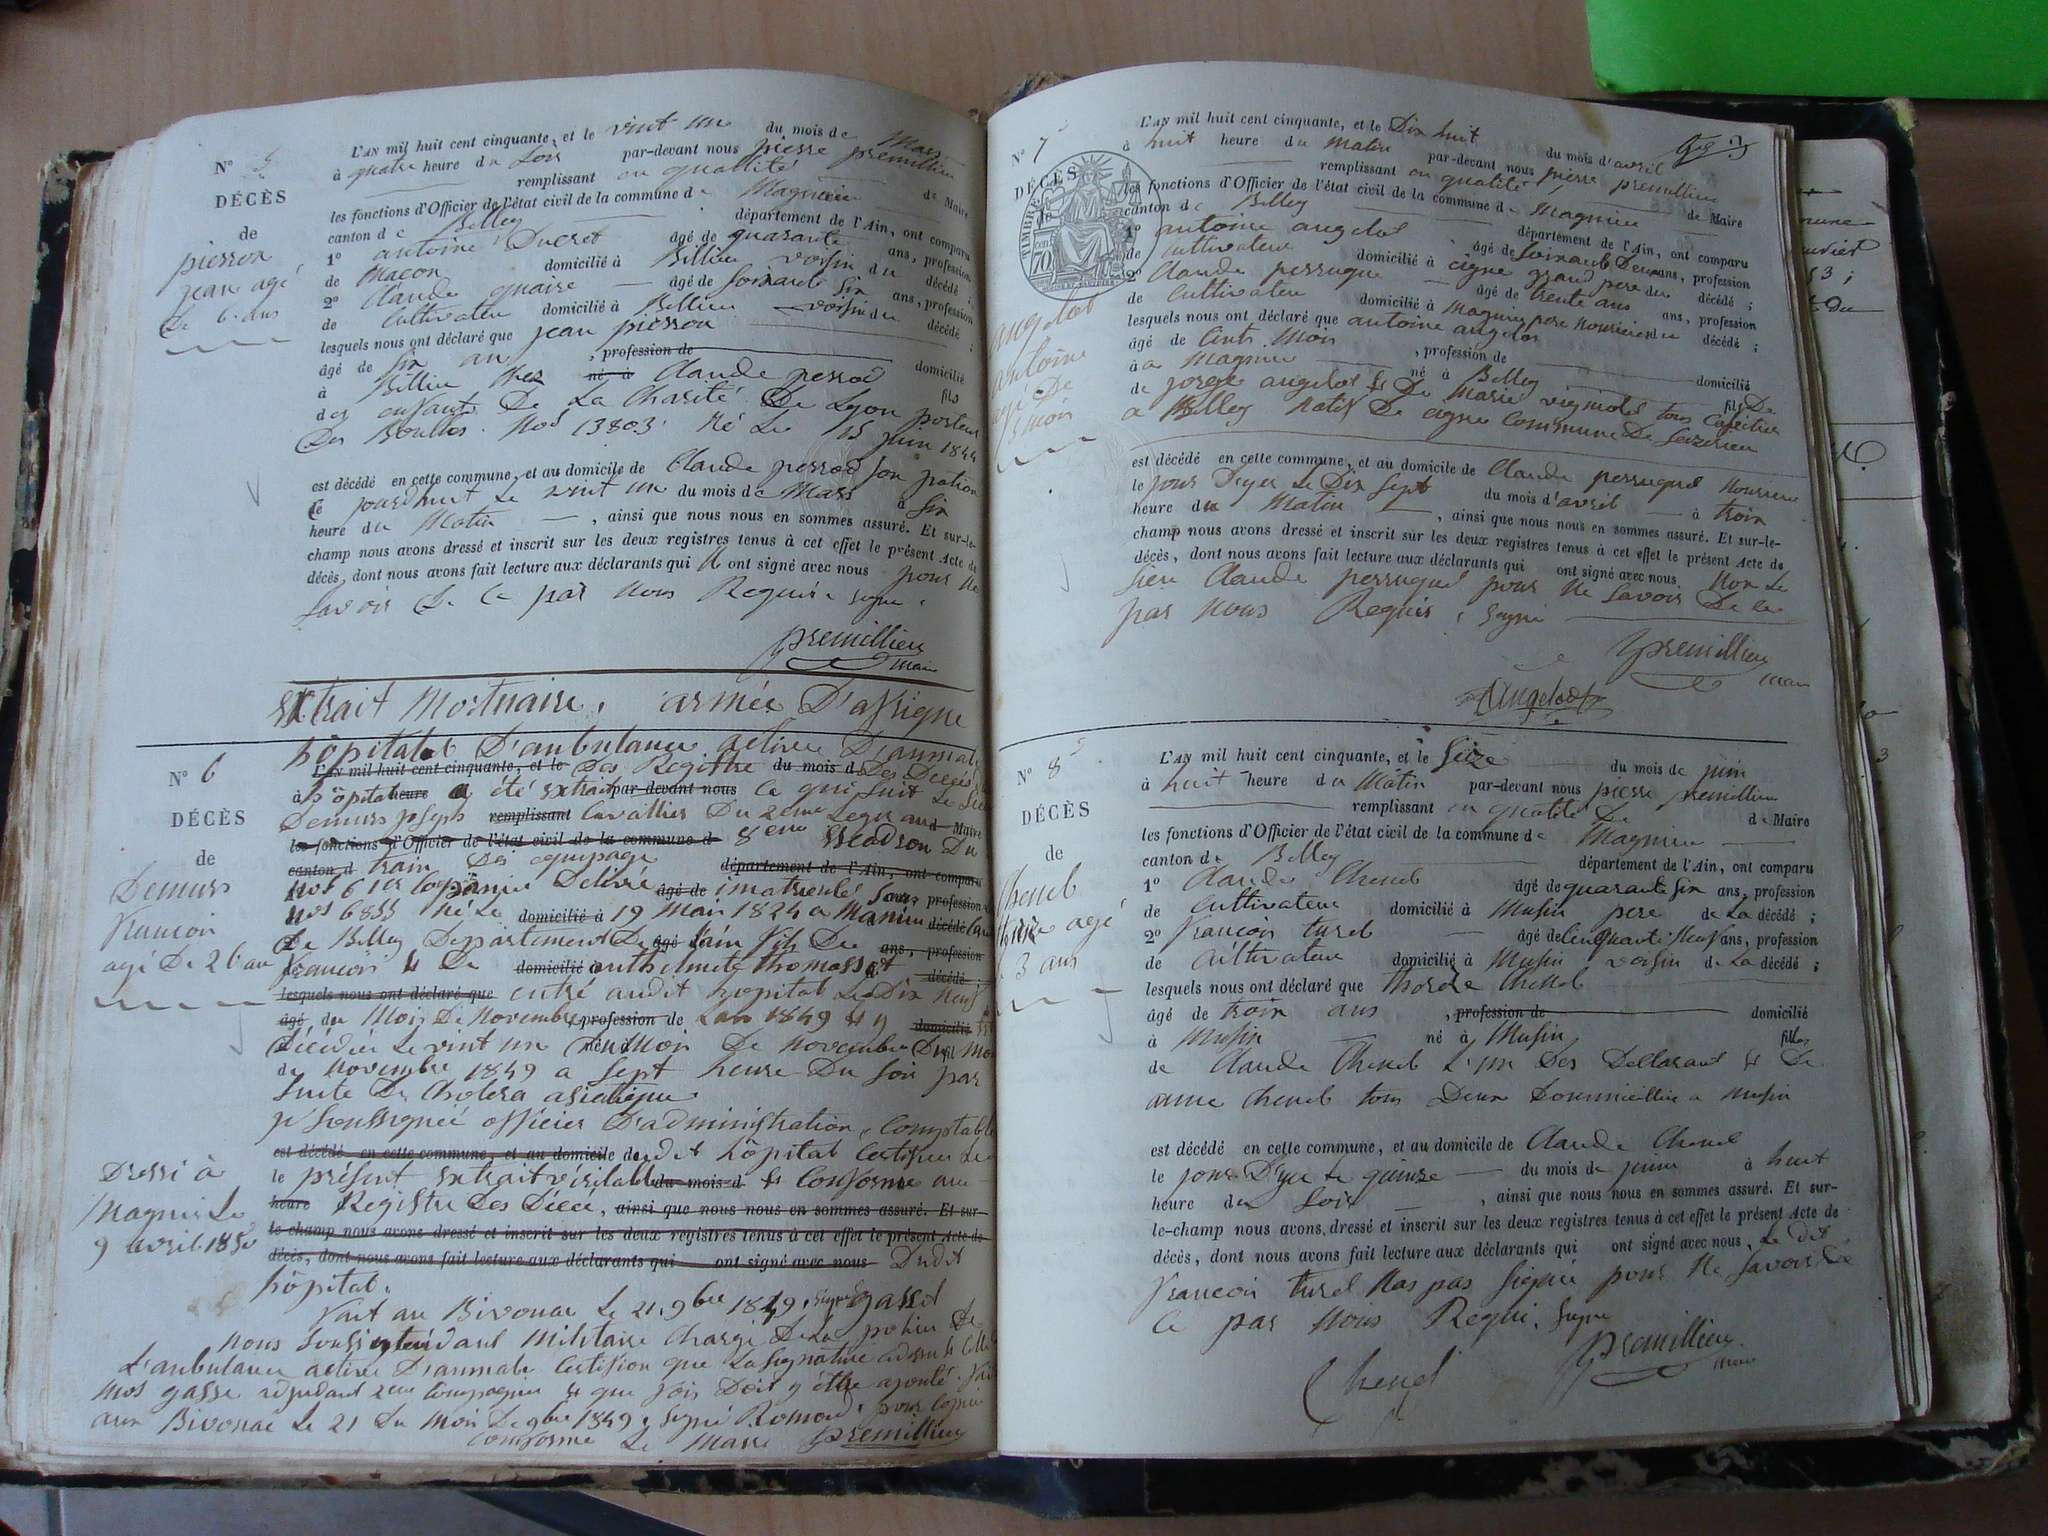 N° 5
DÉCÈS
de
pierron
jean agé
de 6. ans
L'AN mil huit cent cinquante, et le vint un du mois de Mars
à quatre heure du soir par-devant nous pierre premillieu
remplissant en quallité de Maire
les fonctions d'Officier de l'état civil de la commune de Magnieu
canton de Belley département de l'Ain, ont comparu
1° antoine Ducret âgé de quarante ans, profession
de Maçon domicilié à Billieu voisin du décédé ;
2° Claude âgé de soixante six ans, profession
de Cultivateur domicilié à Billieu voisin du décédé ;
lesquels nous ont déclaré que jean pierron
âgé de six an , profession de domicilié
à Billieu chez né à Claude perrod fils
des enfants De La Charité De Lyon porteur
Des Boulles. Nos 13803. Né Le 15 juin 1844
est décédé en cette commune, et au domicile de Claude perrod son patron
le jourd'huit Le vint un du mois de Mars à six
heure du Matin , ainsi que nous nous en sommes assuré. Et sur-le-
champ nous avons dressé et inscrit sur les deux registres tenus à cet effet le présent Acte de
décès, dont nous avons fait lecture aux déclarants qui N ont signé avec nous pour Ne
savoir De Ce par Nous Requis signé.
premillieu
maire
extrait Mortuaire, armée D'afrique
N° 6
DÉCÈS
de
Demurs
francois
agé De 26 an
hôpitale D'anbulance active D'aumale
L'AN mil huit cent cinquante, et le Des Registre du mois d Des Décès
à hôpital heure a été extrait par-devant nous Ce qui suit Le Sieur
Demurs joseph remplissant Cavallier Du 2eme de Maire
les fonctions d'Officier de l'état civil de la commune d 8eme Du
canton d train Des equipage département de l'Ain, ont comparu
âgé de imatriculé sous profession
Nos 6855 Né Le domicilié à 19 Mai 1824 a décédé
De Belley Departement De âgé l'ain fils De ans, profession
francois & De domicilié à décédé
lesquels nous ont déclaré que entré audit hopital Le Dix Neuf
âgé du Mois De Novembre profession de Lan 1849 & y domicilié
Décéder Le vint un né Du Moi De Novembre fil
de Novembre 1849 a sept heure Du Soir par
suite De Cholera asiatique
je soussignéé officier D'administration, Comptable
est décédé en cette commune, et au domicile de dudit hôpital Certifier
le présent extrait véritable du mois d & Conforme au
heure Registre Des Décé, ainsi que nous nous en sommes assuré. Et sur-
le-champ nous avons dressé et inscrit sur les deux registres tenus à cet effet le présent Acte de
décès, dont nous avons fait lecture aux déclarants qui ont signé avec nous Dudit
hôpital.
Dressi à
Magnieu Le
9 avril. 1850
Fait au Bivouac Le 21. 9bre 1849. signé gasse
Nous sousintendant Militaire Chargé De La police De
L'anbulance active D'aumale Certifion que La signature
Mos gasse adjudant 2eme & que fois Doit y être ajouté. fait
aux Bivouac Le 21 du Moi De 9bre 1849, signé pour Copie
Conforme Le Maire premillieu
N° 7
DÉCÈS
de
TIMBRE
70
angelot
antoine
agé De
5 mois
L'AN mil huit cent cinquante, et le Dix huit du mois d'avril
à huit heure du Matin par-devant nous pierre premillieu
remplissant en qualité de Maire
les fonctions d'Officier de l'état civil de la commune de Magnieu
canton de Belley département de l'Ain, ont comparu
1° antoine angelot âgé de soixante Deux ans, profession
de Cultivateur domicilié à cigne grand pere du décédé ;
2° Claude perruque âgé de trente ans ans, profession
de Cultivateur domicilié à Magnieu pere Nourricier du décédé ;
lesquels nous ont déclaré que antoine angelot
âgé de Cinq Mois , profession de domicilié
à a Magnieu né à Belley fils De
de jorge angelot & De Marie tous
a Belley Natif De cigne Commune De
est décédé en cette commune, et au domicile de Claude perruque Nourricie
le jour D'yer Le Dix sept du mois d'avril à trois
heure du Matin , ainsi que nous nous en sommes assuré. Et sur-le-
champ nous avons dressé et inscrit sur les deux registres tenus à cet effet le présent Acte de
décès, dont nous avons fait lecture aux déclarants qui ont signé avec nous Non Le
sieu Claude perruque pour Ne savoir De Ce
par Nous Requis, signé
premillieu
maire
Angelot
N° 8
DÉCÈS
de
Chenel
agé
3 ans
L'AN mil huit cent cinquante, et le Seize du mois de juin
à huit heure du Matin par-devant nous pierre premillieu
remplissant en qualité De de Maire
les fonctions d'Officier de l'état civil de la commune de Magnieu
canton de Belley département de l'Ain, ont comparu
1° Claude Chenel âgé de quarante six ans, profession
de Cultivateur domicilié à Musin pere de La décédé ;
2° francois turel âgé de Cinquante Neuf ans, profession
de Cultivateur domicilié à Musin voisin de La décédé ;
lesquels nous ont déclaré que Chenel
âgé de trois ans , profession de domicilié
à Musin né à Musin fille
de Claude Chenel L'un Des Declarant & De
anne Chenel tous Deux Doumicillie a Musin
est décédé en cette commune, et au domicile de Claude Chenel
le jour D'yer Le quinze du mois de juin à huit
heure du Soir , ainsi que nous nous en sommes assuré. Et sur-
le-champ nous avons dressé et inscrit sur les deux registres tenus à cet effet le présent Acte de
décès, dont nous avons fait lecture aux déclarants qui ont signé avec nous, Le dit
francois turel Nas pas signié pour Ne Savoir De
Ce par Nous Requi, signé
premillieu
maire
Chenel